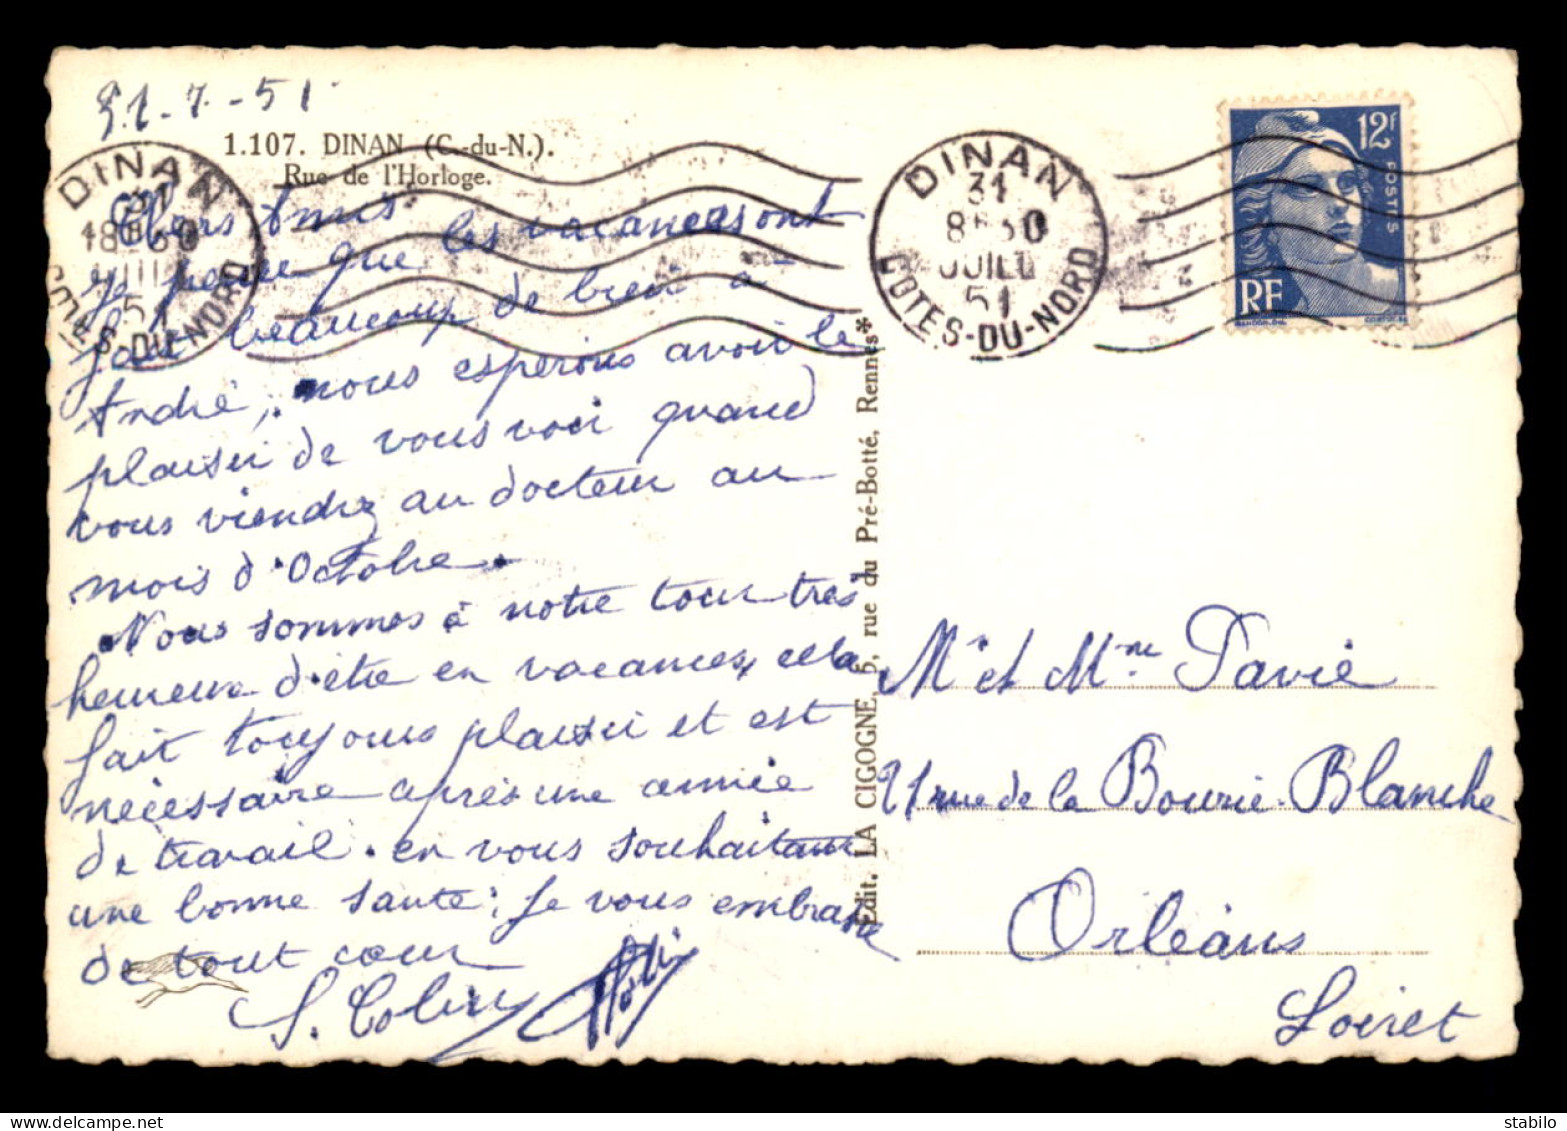 31-7-51
1.107. DINAN (C.-du-N.).
Rue de l'Horloge.
Chers Amis
je pense que les vacances ont
fait beaucoup de bien à
André, nous espérons avoir le
plaisir de vous voir quand
vous viendrez au docteur au
mois d'Octobre.
Nous sommes à notre tour très
heureux d'être en vacances, cela
fait toujours plaisir et est
nécessaire après une année
de travail. en vous souhaitant
une bonne santé, je vous embrasse
de tout cœur
S. Colin
DINAN
31
18H30
51
COTES-DU-NORD
DINAN
31
8H30
JUIL
51
COTES-DU-NORD
12F
POSTES
RF
Edit. LA CIGOGNE, 5, rue du Pré-Botté, Rennes*
Mr et Mme Pavie
21 rue de la Bourie-Blanche
Orléans
Loiret
stabilo